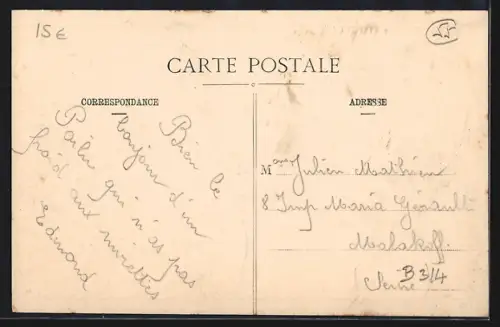 15€
CARTE POSTALE
CORRESPONDANCE
ADRESSE
Bien le
bonjour d'un
Poilu qui n'as pas
froid aux mirettes
Edmond
Mme Julien Mathieu
8 Imp Maria Gérault
Malakoff.
B 314
Seine